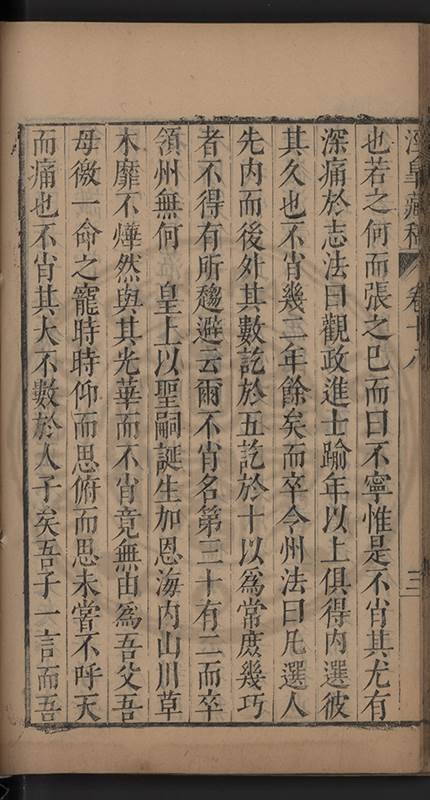 涇皐藏稿 卷十八 三
也若之何而張之已而曰不寧惟是不肖其尤有
深痛於志法曰觀政進士踰年以上俱得内選彼
其久也不肖幾三年餘矣而卒令州法曰凡選人
先内而後外其數訖於五訖於十以爲常庻幾巧
者不得有所趨避云爾不肖名第三十有二而卒
領州無何 皇上以聖嗣誕生加恩海内山川草
木靡不燁然與其光華而不肖竟無由爲吾父吾
母徼一命之寵時時仰而思俯而思未甞不呼天
而痛也不肖其大不數於人子矣吾子一言而吾